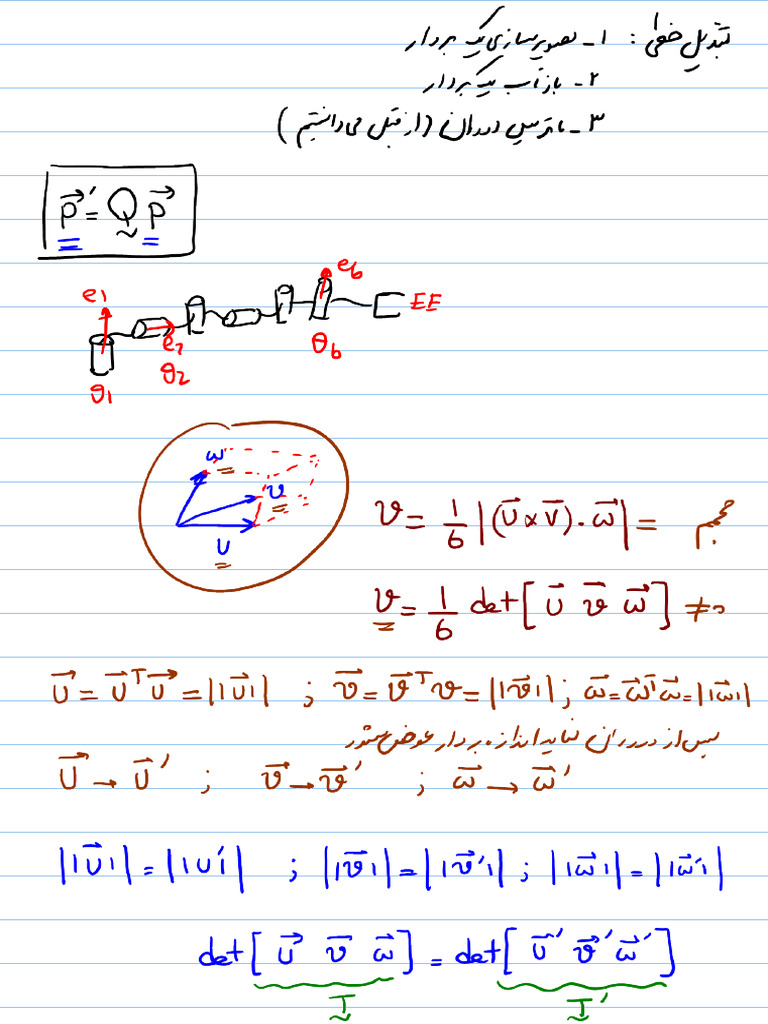 تبدیل خطی : ۱- تصویرسازی یک بردار
۲- بازتاب یک بردار
۳- ماتریس دوران (از قبل می دانستیم)
p⃗' = Q p⃗
e1 e2 e6 EE
θ1 θ2 θ6
ω v U
v = 1/6 |(U⃗ × V⃗) . ω⃗| = حجم
v = 1/6 det[U⃗ v⃗ ω⃗] ≠ 0
U⃗ = U⃗ᵀU⃗ = ||U⃗|| ; v⃗ = v⃗ᵀv = ||v⃗|| ; ω⃗ = ω⃗ᵀω⃗ = ||ω||
پس از دوران نباید اندازه بردار عوض شود
U⃗ → U⃗' ; v⃗ → v⃗' ; ω⃗ → ω⃗'
||U⃗|| = ||U'|| ; ||v⃗|| = ||v⃗'|| ; ||ω⃗|| = ||ω⃗'||
det[U⃗ v⃗ ω⃗] = det[U⃗' v⃗' ω⃗']
T T'